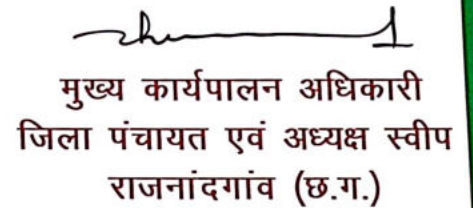 मुख्य कार्यपालन अधिकारी
जिला पंचायत एवं अध्यक्ष स्वीप
राजनांदगांव (छ.ग.)